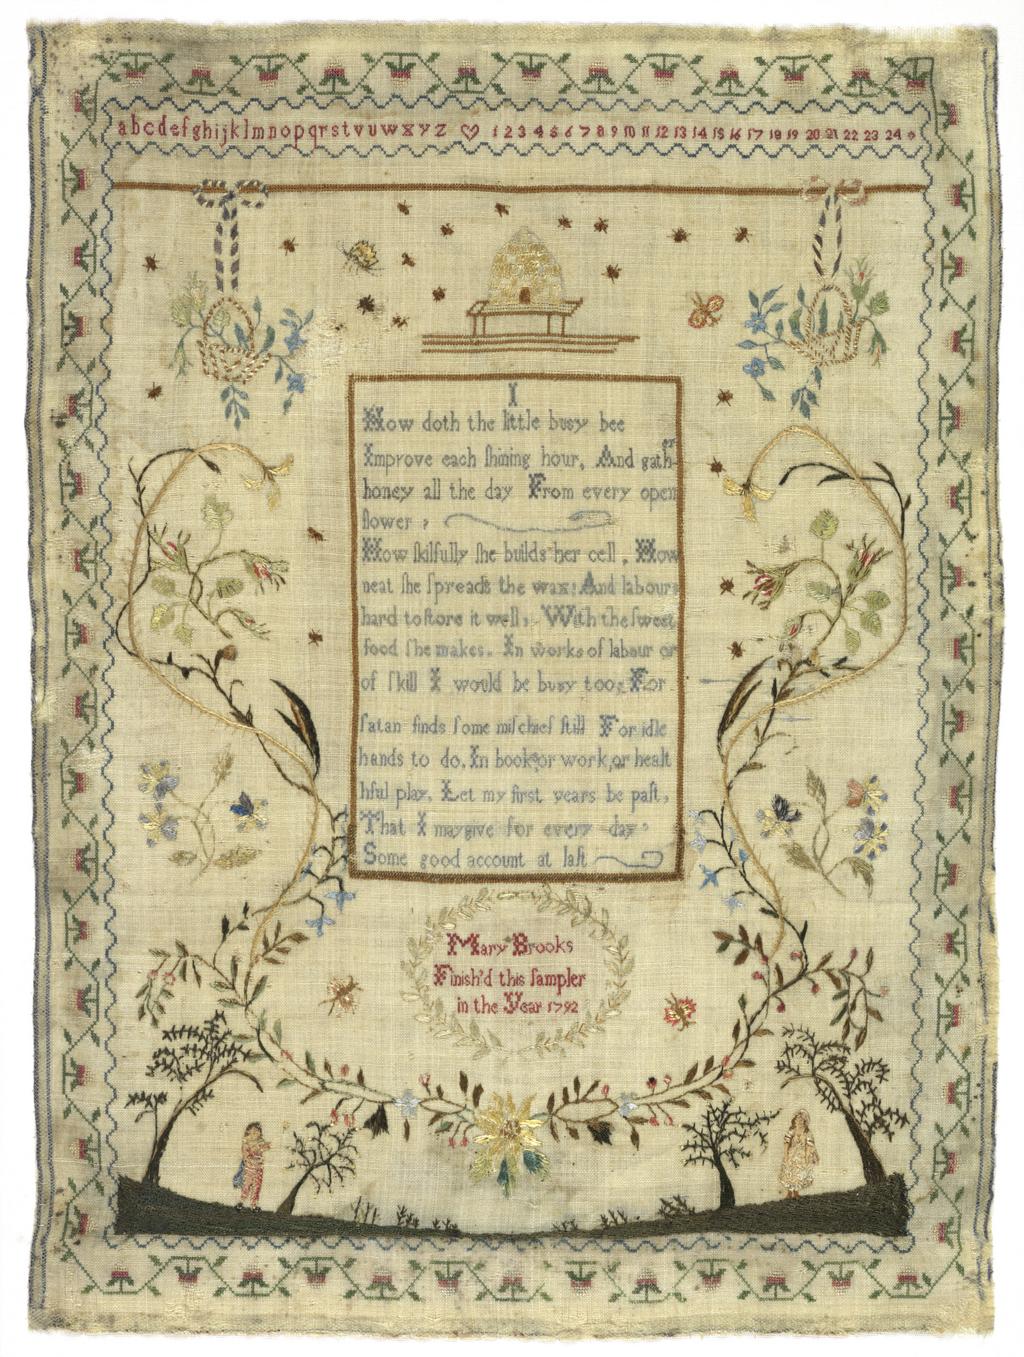 abcdefghijklmnopqrstvuwxyz 1 2 3 4 5 6 7 8 9 10 11 12 13 14 15 16 17 18 19 20 21 22 23 24
I
How doth the little busy bee
Improve each ſhining hour, And gath er
honey all the day From every open
flower,
How ſkilfully ſhe builds her cell, How
neat ſhe ſpreads the wax; And labours
hard to ſtore it well, With the ſweet
food ſhe makes. In works of labour or
of ſkill I would be busy too; For
ſatan finds ſome miſchief ſtill For idle
hands to do. In book or work or healt
hful play, Let my first years be paſt,
That I may give for every day
Some good account at laſt
Mary Brooks
Finish'd this ſampler
in the Year 1792